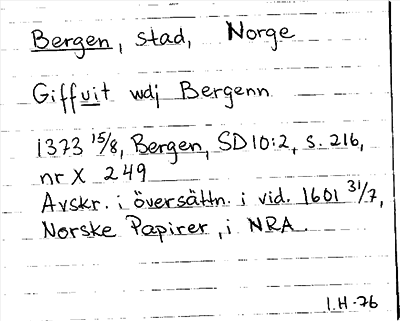 Bergen, stad, Norge
Giffuit wdj Bergenn
1373 15/8, Bergen, SD 10:2, s. 216,
nr X 249
Avskr. i översättn. i vid. 1601 31/7,
Norske Papirer, i NRA.
I.H-76